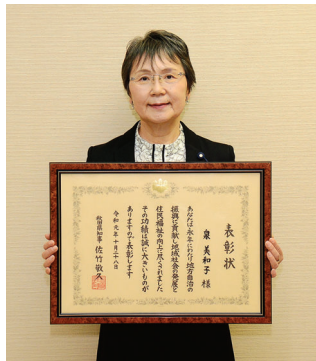 表彰状
泉美和子様
あなたは永年にわたり地方自治の
振興に貢献し地域社会の発展と
住民福祉の向上に尽くされました
その功績は誠に大きいものが
ありますので表彰します
令和元年十月二十八日
秋田県知事佐竹敬久